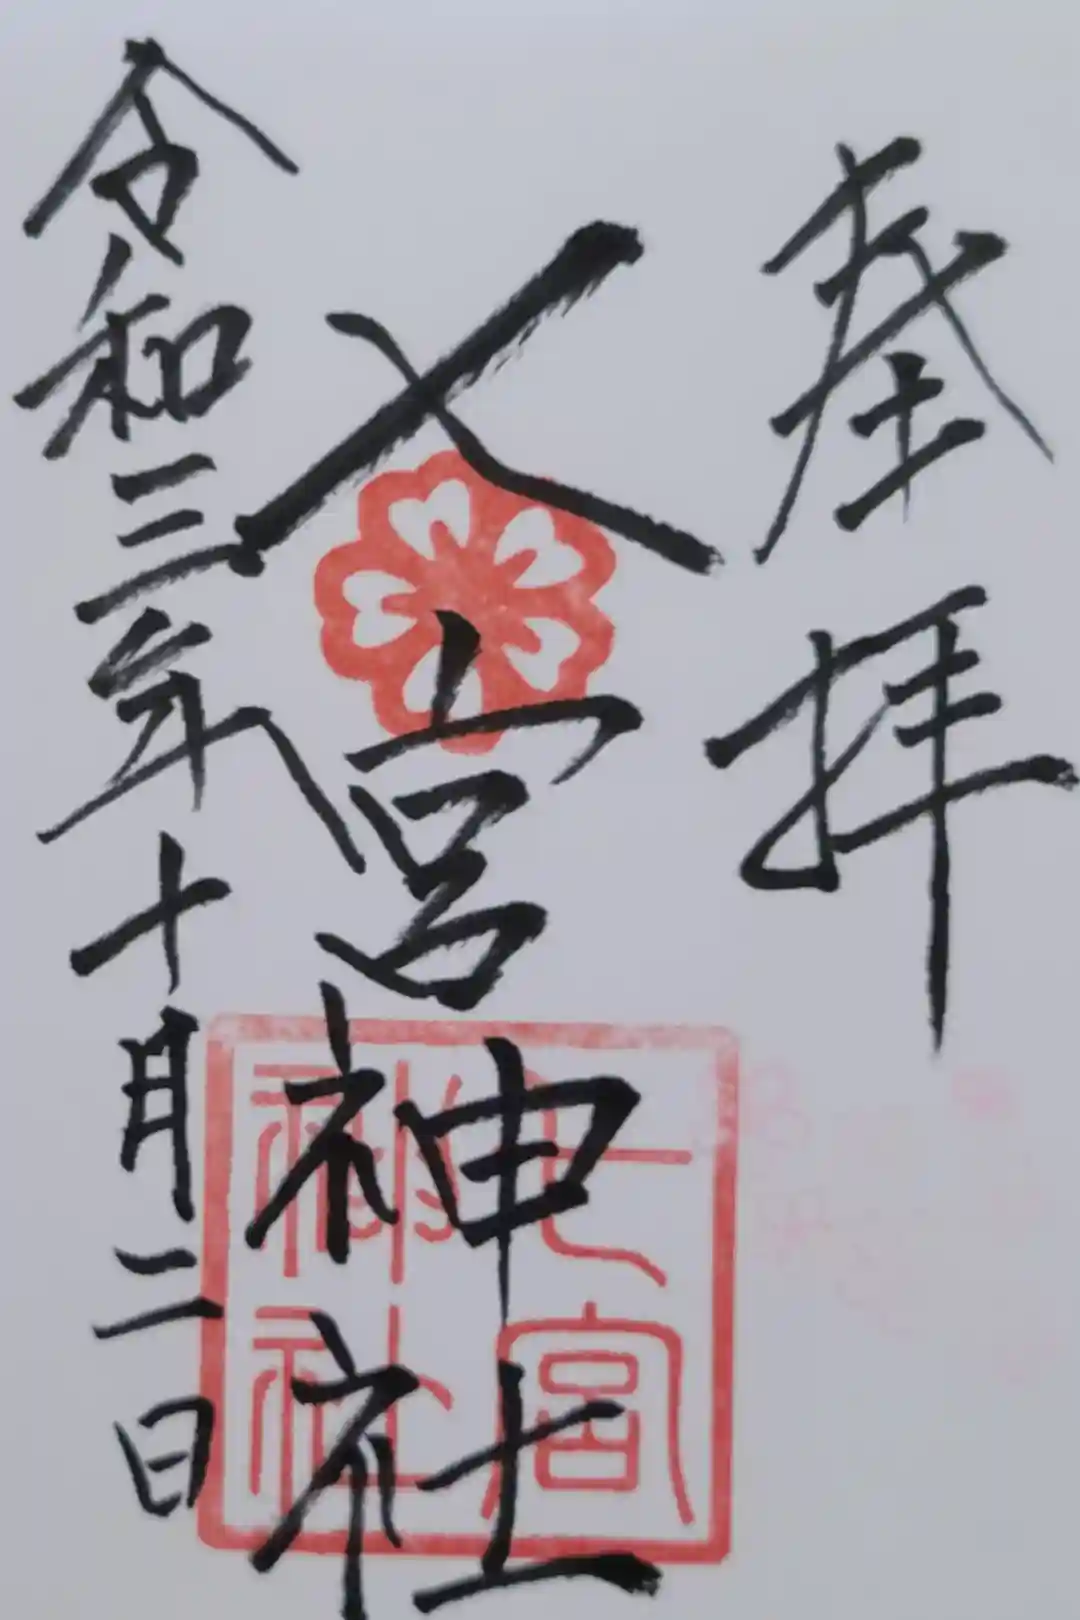 奉拝
七宮神社
令和三年十月二日
七宮
神社